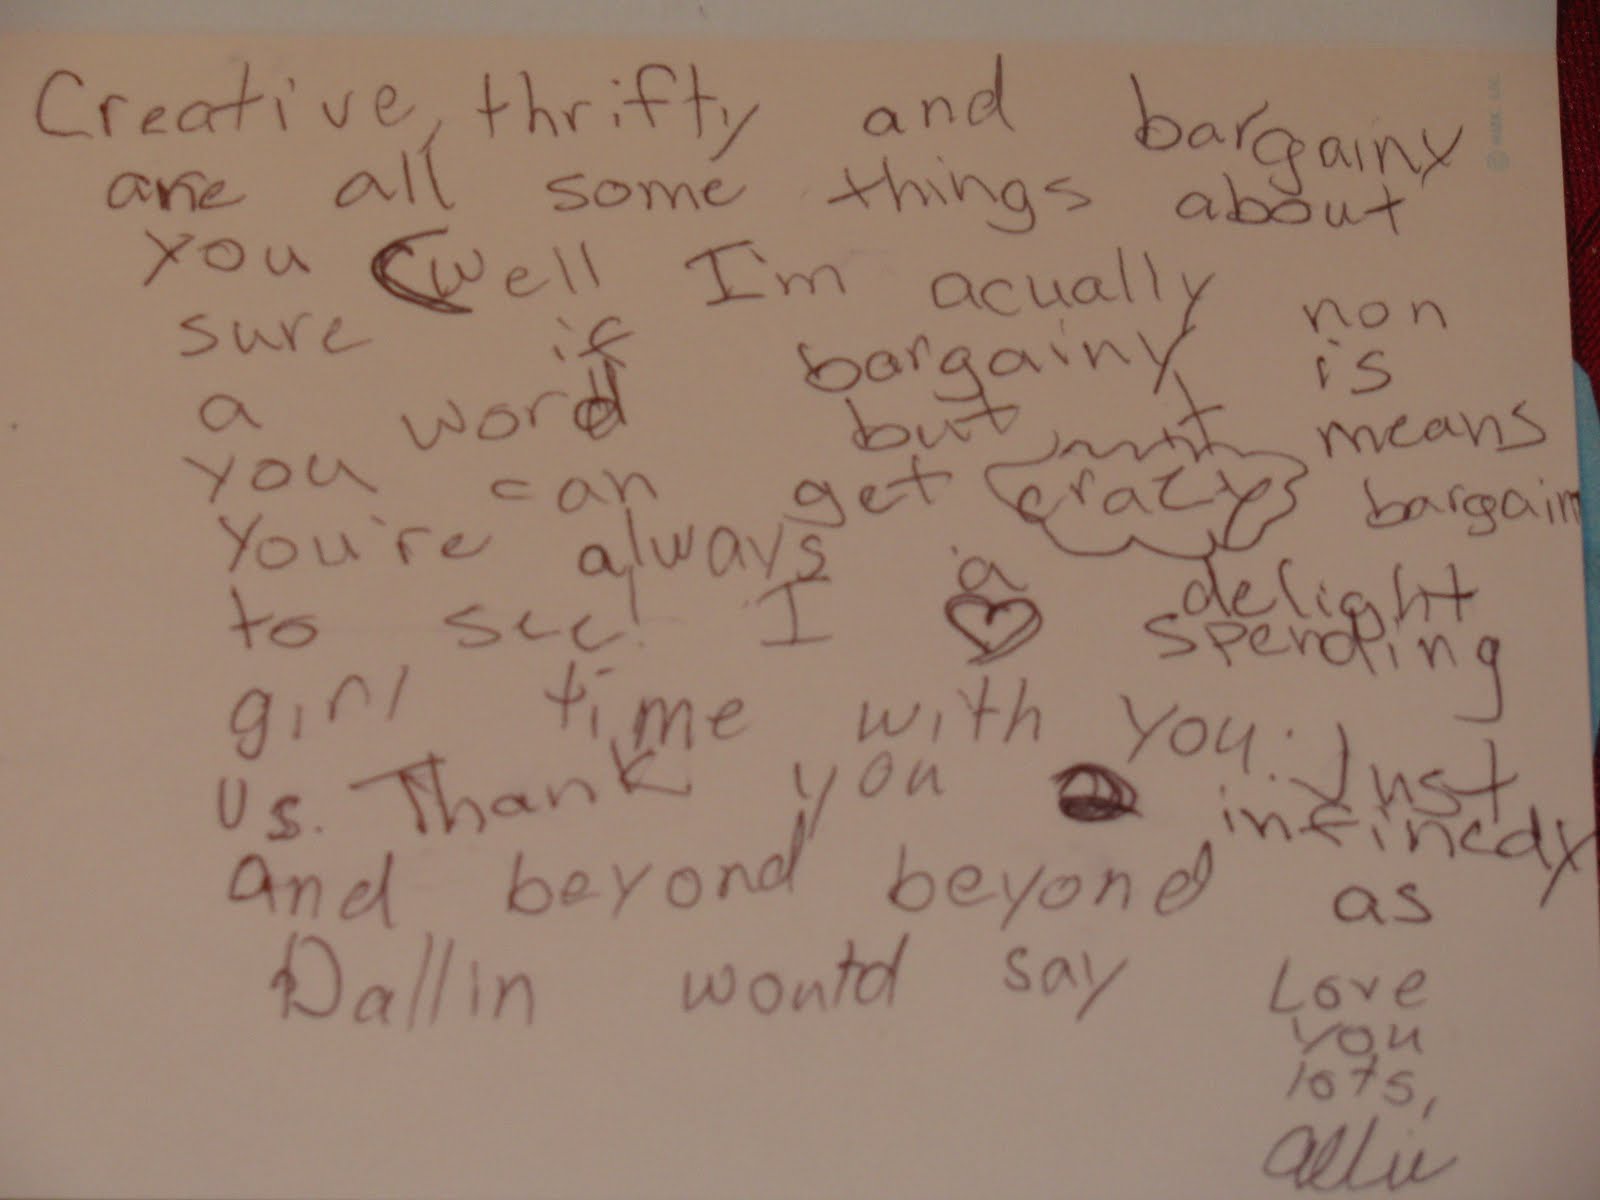 Creative, thrifty and bargainy
are all some things about
you (well I'm acually non
sure if bargainy is
a word but it means
you can get crazy bargain
You're always a delight
to see! I ♡ spending
girl time with you. Just
us. Thank you infinedy
and beyond beyond as
Dallin would say
Love
you
lots,
Allie